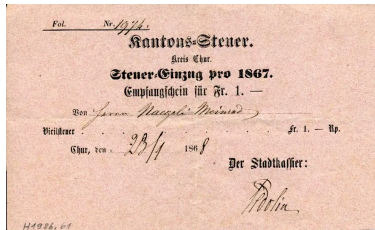 Fol. Nr. 1974.
Kantons-Steuer.
Kreis Chur.
Steuer-Einzug pro 1867.
Empfangschein für Fr. 1. —
Von Herrn Naegeli Meinrad
Virilsteuer . . . . . . . . Fr. 1 — Rp.
Chur, den 23/1 1868
Der Stadtkassier:
H1986.61